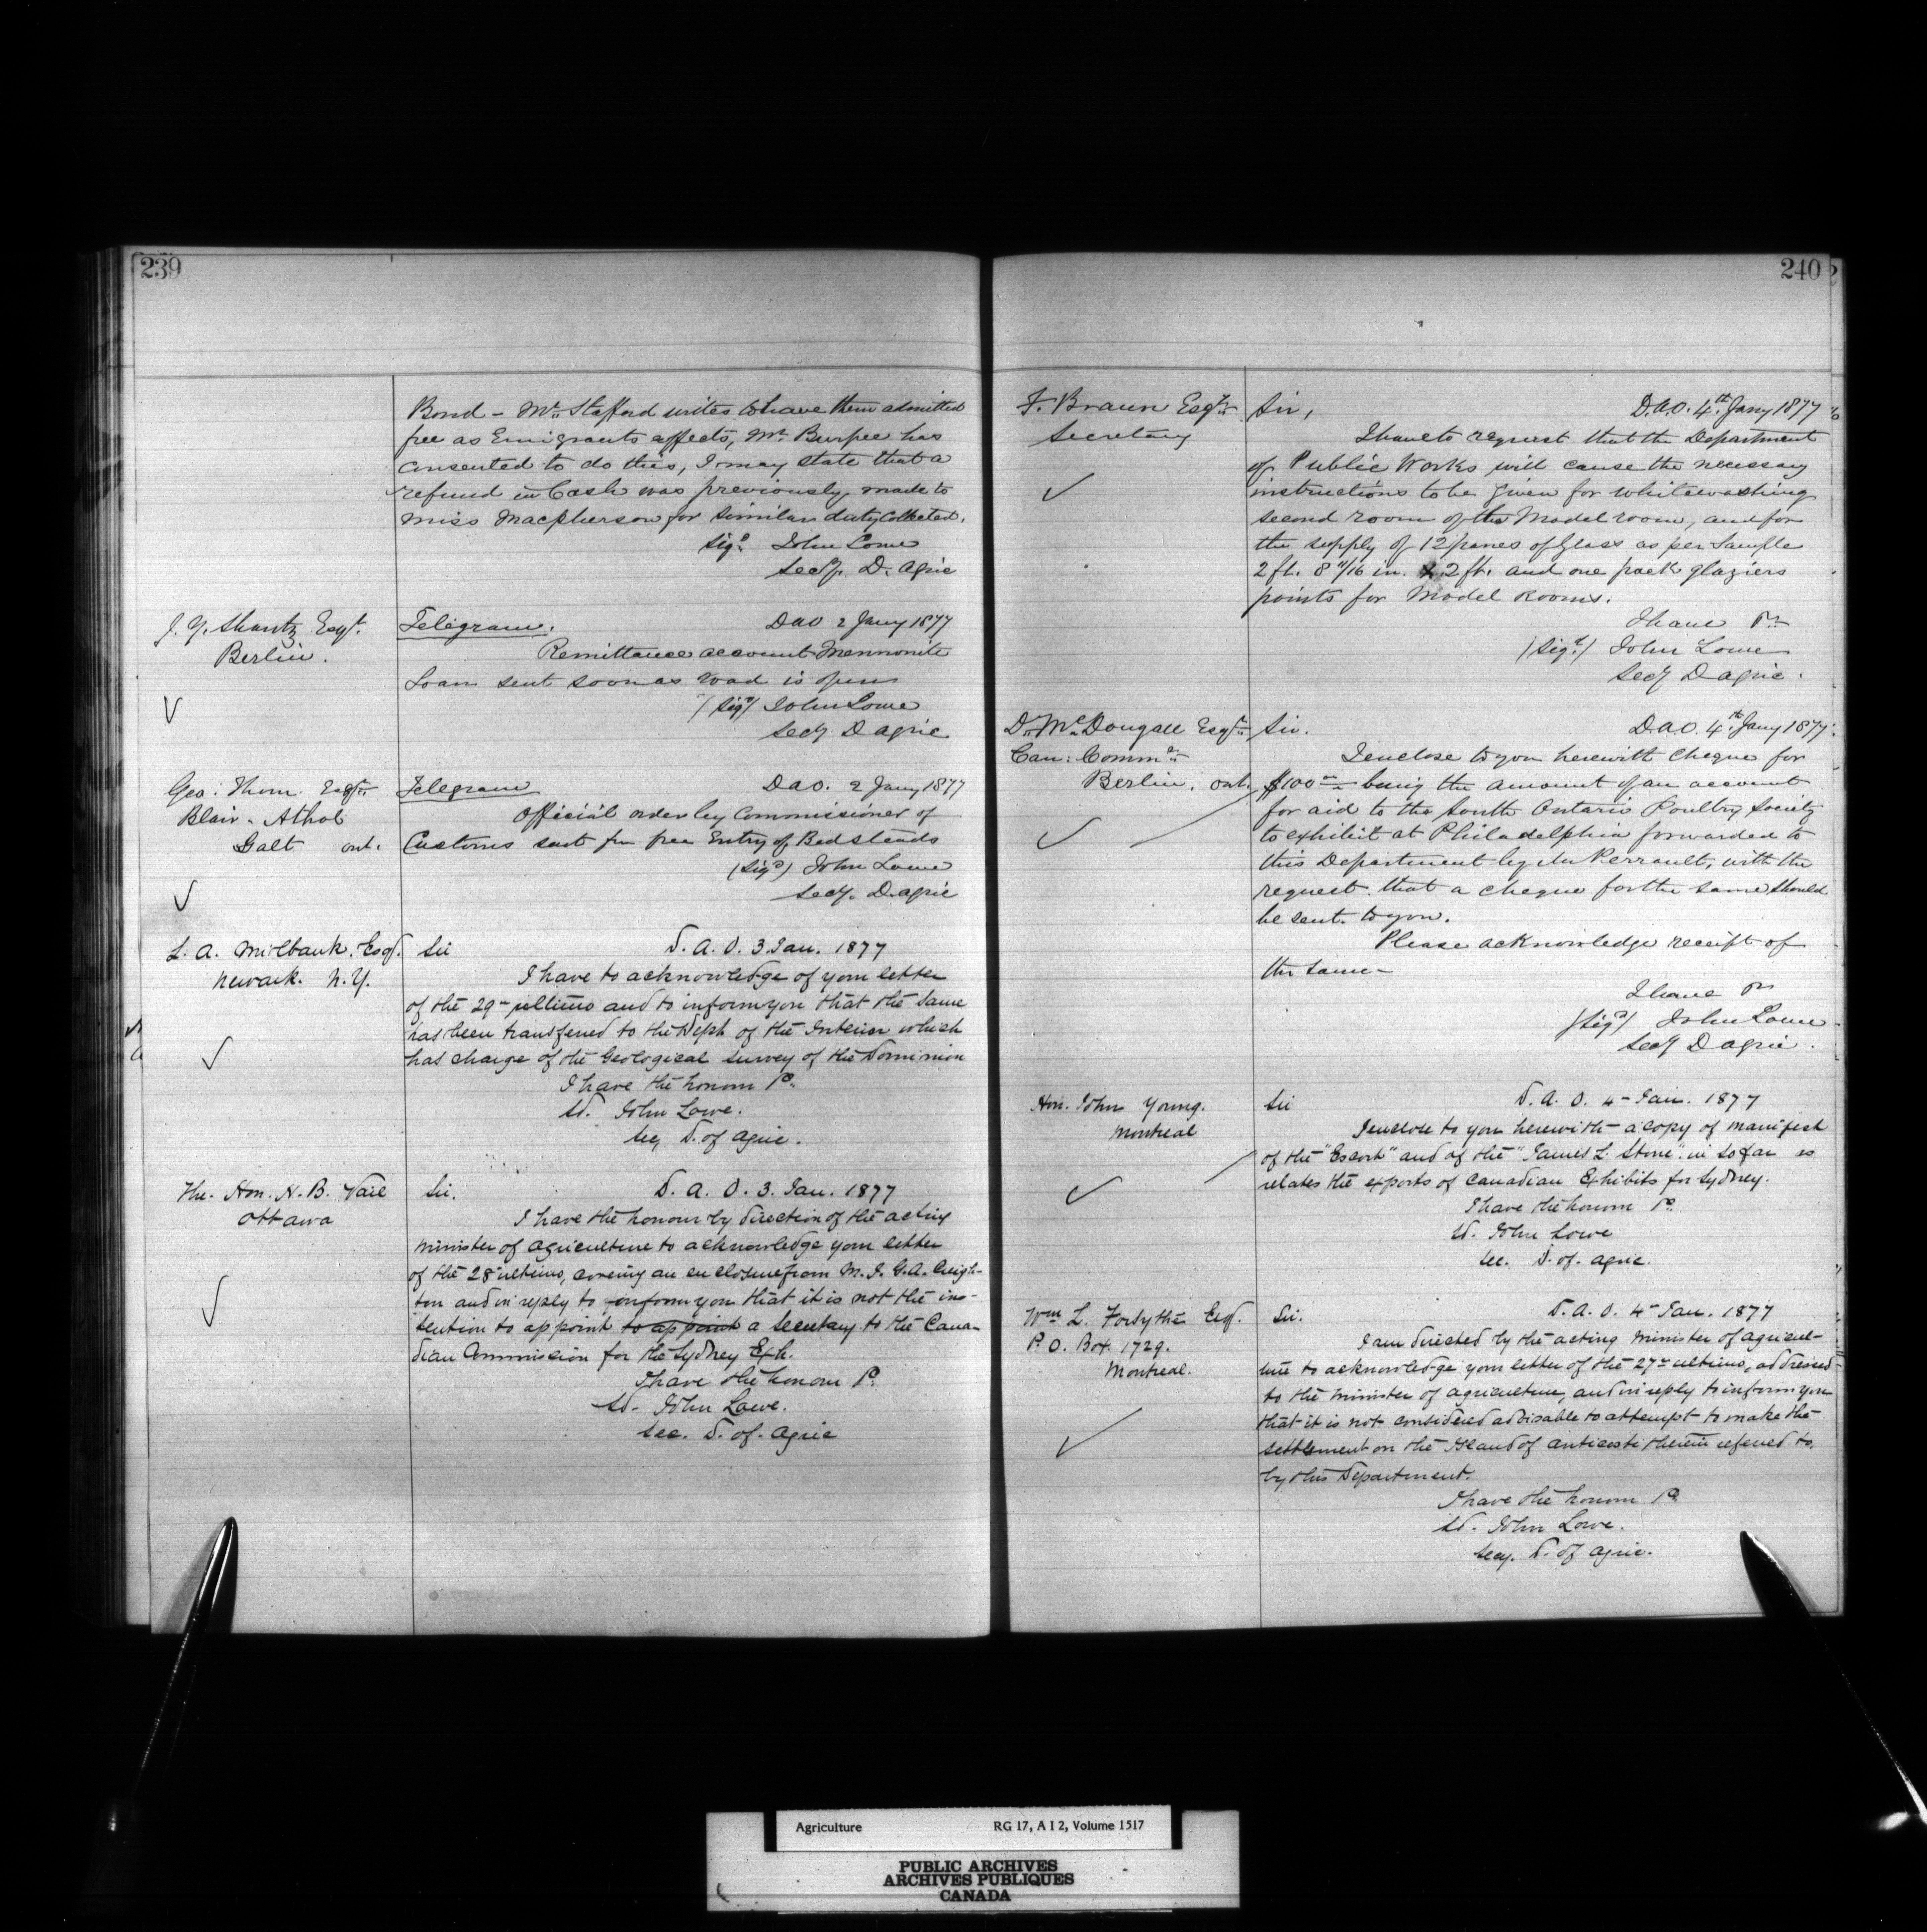 239
Bond - Mr. Stafford writes to have them admitted
free as Emigrants effects, Mr. Burpee has
consented to do this, I may state that a
refund in Cash was previously made to
Miss Macpherson for similar duty Collected.
Sigd. John Lowe
Secy. D. Agric
J. Y. Shantz Esqr.
Berlin.
Telegram. DAO 2 Jany 1877
Remittance account Mennonite
Loan sent soon as road is open
(Sigd) John Lowe
Secy D Agric
Geo: Thom. Esqr.
Blair-Athol
Galt ont.
Telegram DAO. 2 Jany 1877
Official order by Commissioner of
Customs sent for free Entry of Bedsteads
(Sigd) John Lowe
Secy. D. Agric
L. A. Milbank. Esq.
Newark. N.Y.
Sir D. A. O. 3 Jan. 1877
I have to acknowledge of your letter
of the 29th ultimo and to inform you that the same
has been transfered to the Dept of the Interior which
has charge of the Geological survey of the Dominion
I have the honour &c.
Sd. John Lowe.
Sec. D. of Agric.
The. Hon. N. B. Vail
Ottawa
Sir. D. A. O. 3. Jan. 1877
I have the honour by direction of the acting
minister of agriculture to acknowledge your letter
of the 28th ultimo, covering an enclosure from M. J. G. A. Creigh-
ton and in reply to inform you that it is not the in-
tention to appoint to appoint a Secretary to the Cana-
dian Commission for the Sydney Exh.
I have the honour &c.
Sd. John Lowe.
Sec. D. of. Agric
240
F. Braun Esqr.
Secretary
Sir, D.A.O. 4th. Jany 1877
I have to request that the Department
of Public Works will cause the necessary
instructions to be given for whitewashing
second room of the Model room, and for
the supply of 12 panes of Glass as per Sample
2 ft. 8 11/16 in. x 2 ft. and one pack glaziers
points for Model Rooms.
I have &c
(Sigd.) John Lowe
Secy D Agric.
D. McDougall Esqr.
Can: Commr.
Berlin. ont.
Sir. D.A.O. 4th Jany 1877.
I enclose to you herewith cheque for
$100 being the amount of an account
for aid to the South Ontario Poultry Society
to exhibit at Philadelphia forwarded to
this Department by Mr Perrault, with the
request that a cheque for the same should
be sent to you.
Please acknowledge receipt of
the same-
I have &c
(Sigd) John Lowe
Secy D Agric.
Hon. John Young.
Montreal
Sir D. A. O. 4th Jan. 1877
I enclose to you herewith a copy of manifest
of the "Escort" and of the "James L. Stone" in so far as
relates the exports of Canadian Exhibits for Sydney.
I have the honour &c.
Sd. John Lowe
Sec. D. of. Agric.
Wm L. Forsythe Esq.
P. O. Box. 1729.
Montreal.
Sir. D. A. O. 4th Jan. 1877
I am directed by the acting Minister of Agricul-
ture to acknowledge your letter of the 27th ultimo, addressed
to the Minister of Agriculture, and in reply to inform you
that it is not considered advisable to attempt to make the
settlement on the Island of Anticosti therein refered to,
by this Department.
I have the honour &c
Sd. John Lowe.
Secy. D. of Agric.
Agriculture RG 17, A I 2, Volume 1517
PUBLIC ARCHIVES
ARCHIVES PUBLIQUES
CANADA